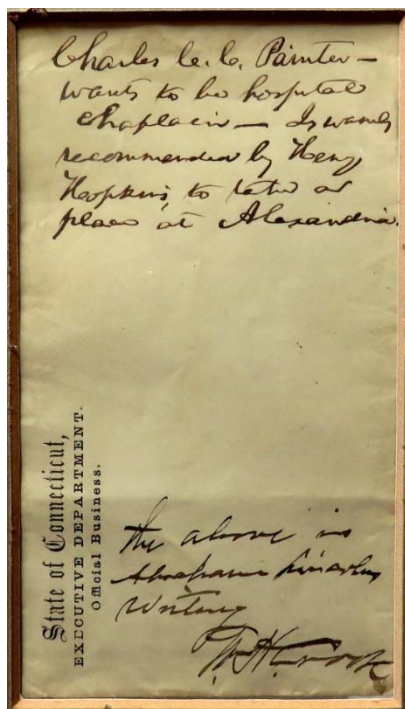 Charles C. C. Painter —
wants to be hospital
chaplain — Is warmly
recommended by Henry
Hopkins, to take a
place at Alexandria.
State of Connecticut,
EXECUTIVE DEPARTMENT.
Official Business.
The above is
Abraham Lincolns
writing
W. H. Crook